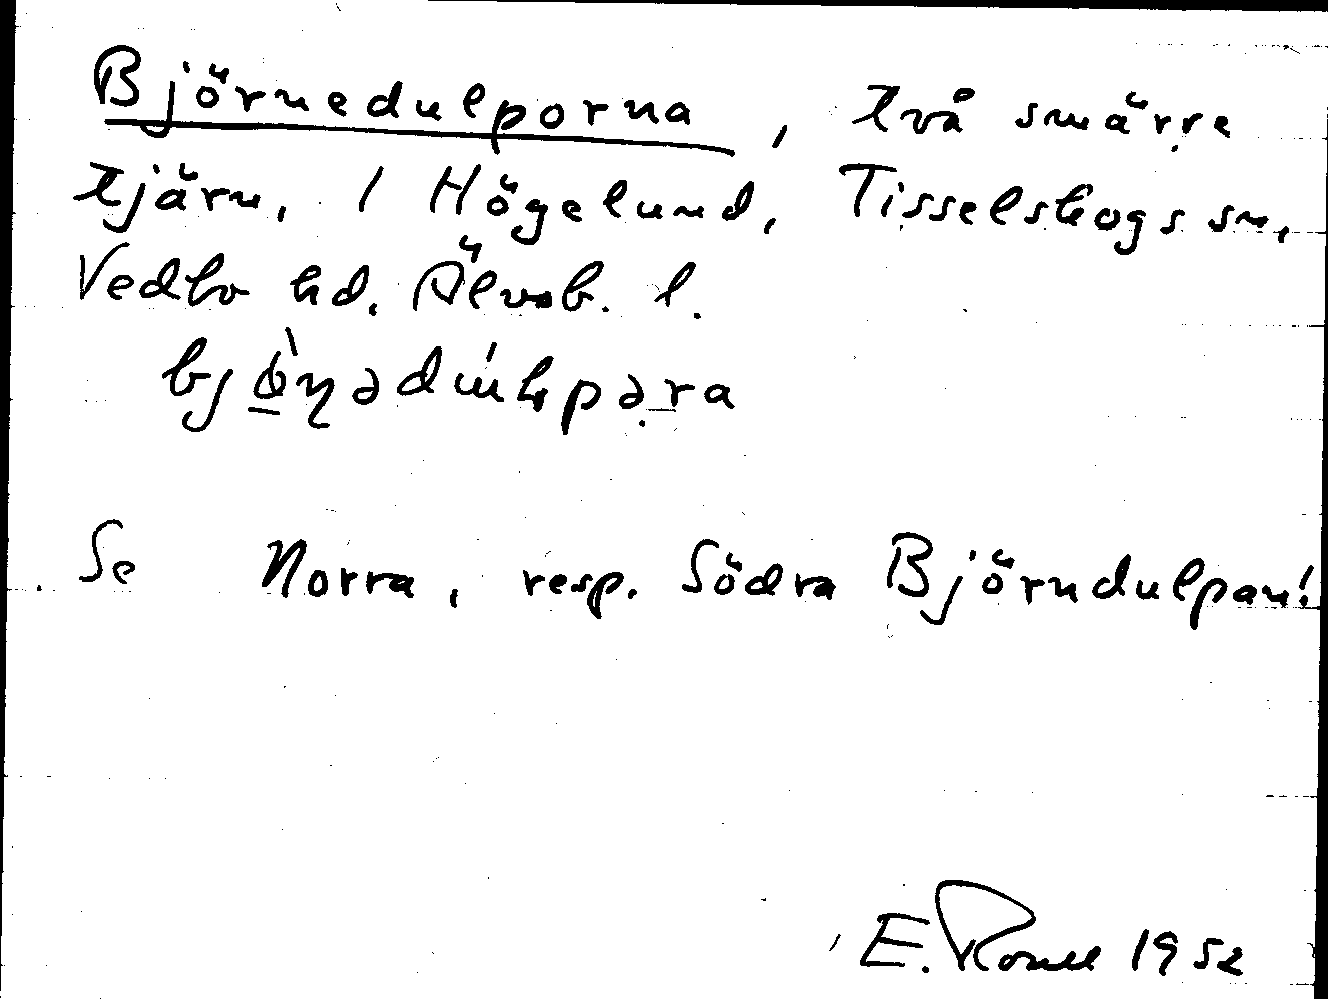 Björnedulporna, två smärre
tjärn, 1 Högelund, Tisselskogs sn,
Vedbo hd. Älvsb. l.
Se Norra, resp. Södra Björndulpan!
E. 1952